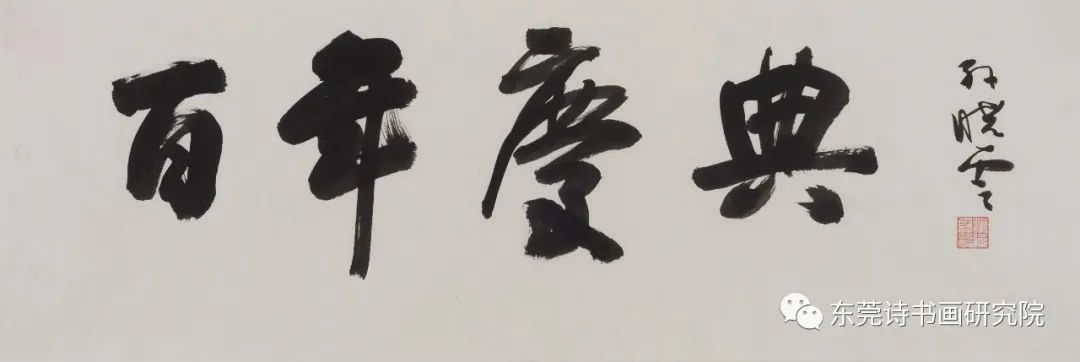 百年慶典
孙晓云
东莞诗书画研究院